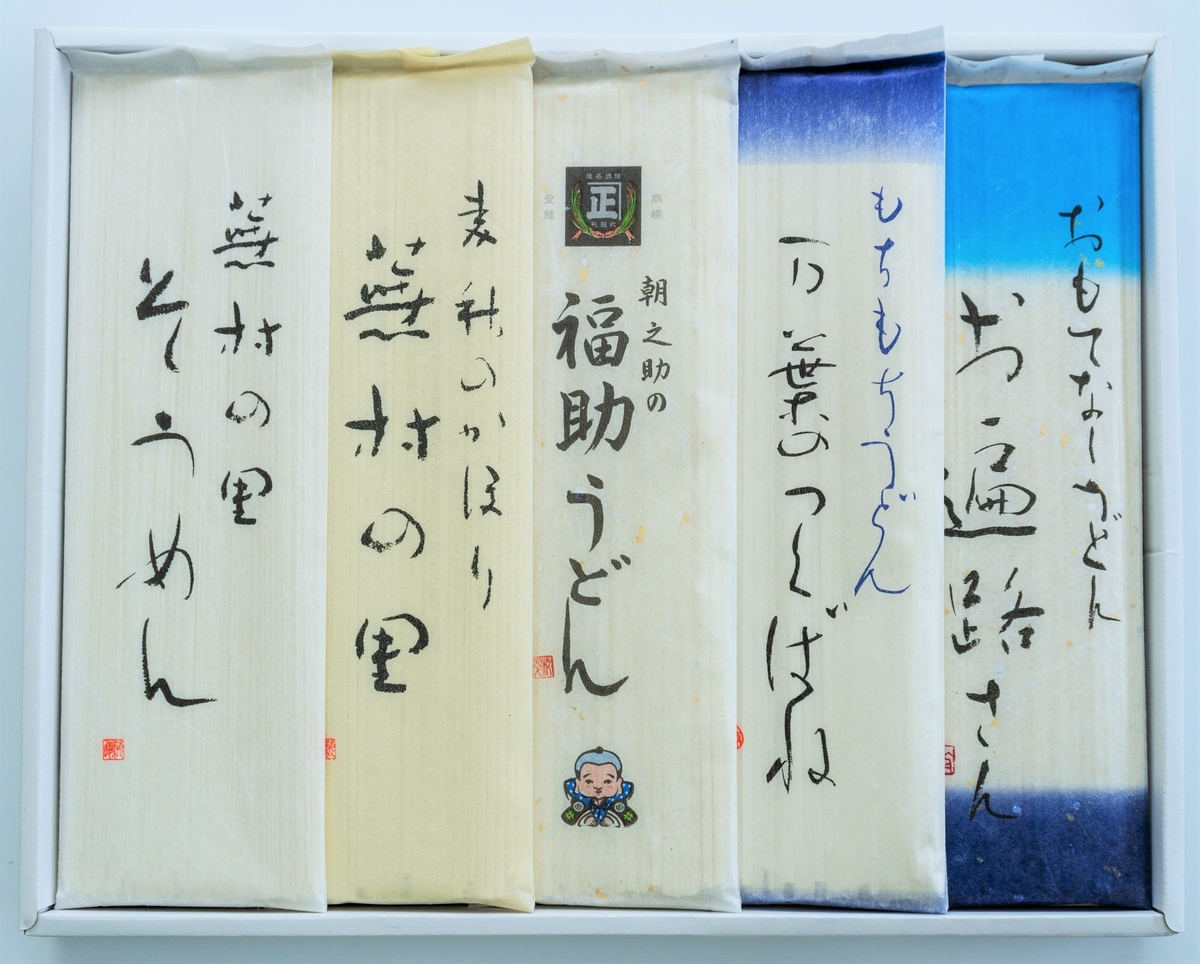 おもてなしうどん
お遍路さん
もちもちうどん
万葉のつくばね
登録
商標
正
朝之助の
福助うどん
麦秋のかほり
蕪村の里
蕪村の里
そうめん